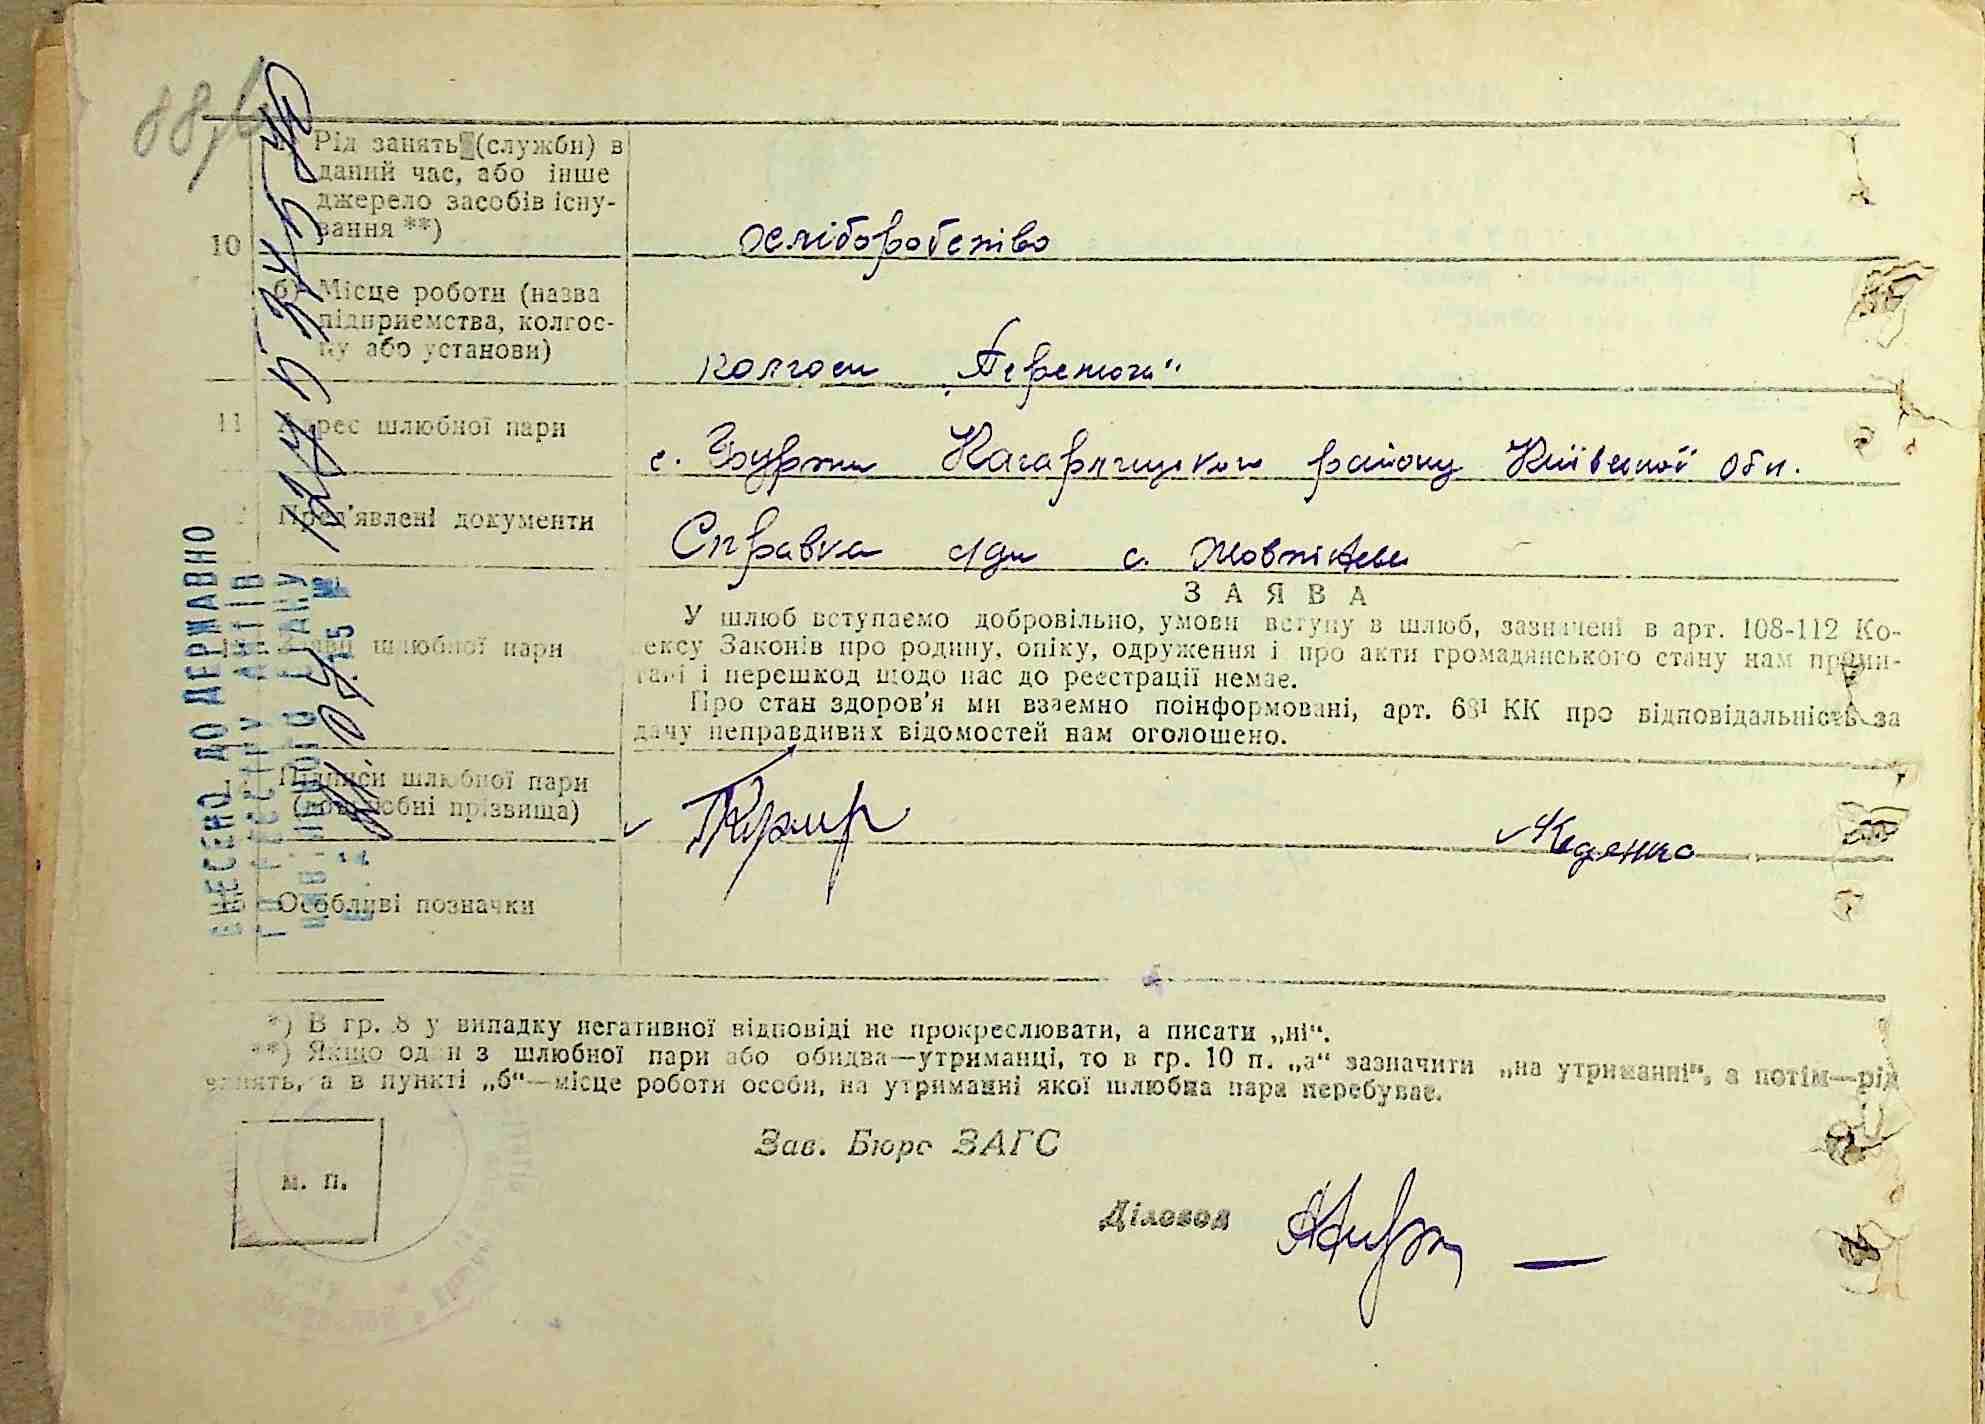 88
Рід занять (служби) в
даний час, або інше
джерело засобів існу-
вання **)
хліборобство
10
б) Місце роботи (назва
підприємства, колгос-
пу або установи)
колгосп „Перемога“
11 Адрес шлюбної пари
с. Бурти Кагарлицького району Київської обл.
Пред'явлені документи
Справка с/ди с.
ЗАЯВА
шлюбної пари
У шлюб вступаємо добровільно, умови вступу в шлюб, зазначені в арт. 108-112 Ко-
дексу Законів про родину, опіку, одруження і про акти громадянського стану нам прочи-
тані і перешкод щодо нас до реєстрації немає.
Про стан здоров'я ми взаємно поінформовані, арт. 68¹ КК про відповідальність за
дачу неправдивих відомостей нам оголошено.
Підписи шлюбної пари
(дошлюбні прізвища)
Особливі позначки
ВНЕСЕНО ДО ДЕРЖАВНО
ГО РЕЄСТРУ АКТІВ
ЦИВІЛЬНОГО СТАНУ
*) В гр. 8 у випадку негативної відповіді не прокреслювати, а писати „ні“.
**) Якщо один з шлюбної пари або обидва—утриманці, то в гр. 10 п. „а“ зазначити „на утриманні“, а потім—рід
занять, а в пункті „б“—місце роботи особи, на утриманні якої шлюбна пара перебуває.
Зав. Бюро ЗАГС
м. п.
Діловод